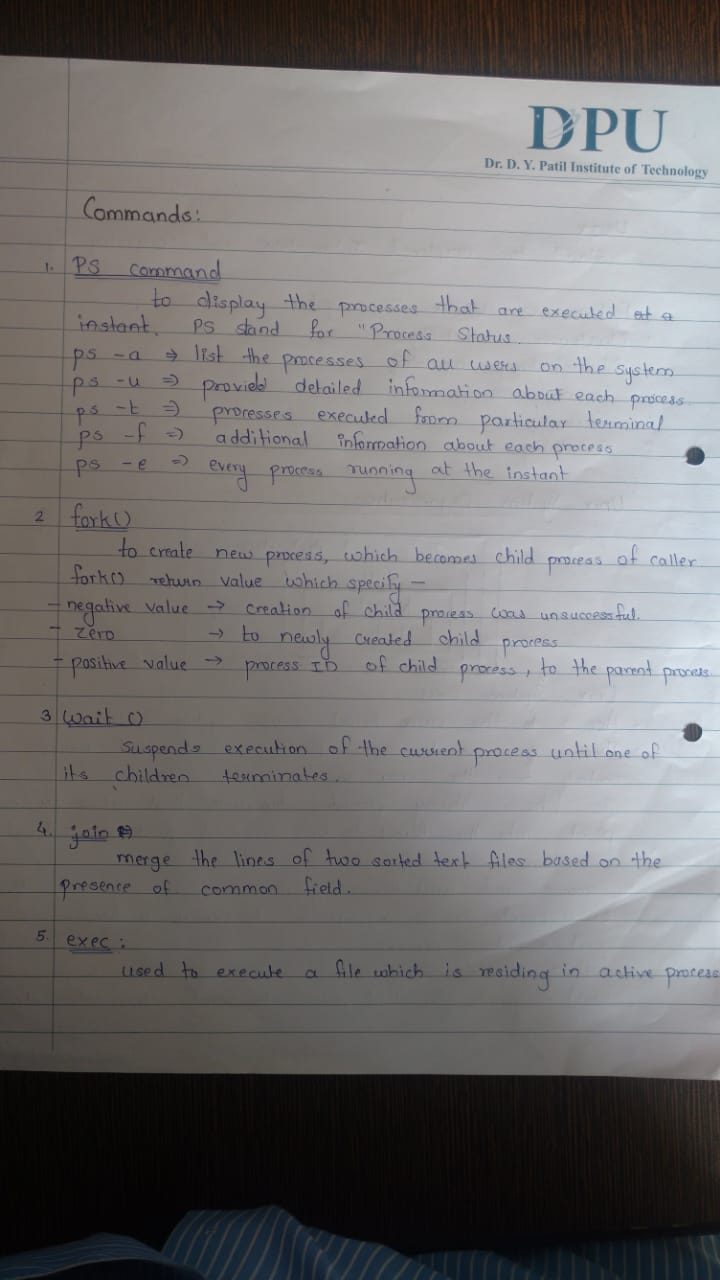 DPU
Dr. D. Y. Patil Institute of Technology
Commands:
1. PS command
to display the processes that are executed at a
instant. PS stand for "Process Status.
ps -a ⇒ list the processes of all users on the system
ps -u ⇒ provield detailed information about each process.
ps -t ⇒ processes executed from particular terminal
ps -f ⇒ additional information about each process
ps -e ⇒ every process running at the instant
2 fork()
to create new process, which becomes child process of caller
fork() return value which specify –
- negative value → creation of child process was unsuccessful.
- zero → to newly created child process
- positive value → process ID of child process, to the parent process.
3 wait ()
Suspends execution of the current process until one of
its children terminates.
4. join
merge the lines of two sorted text files based on the
presence of common field.
5. exec :
used to execute a file which is residing in active process